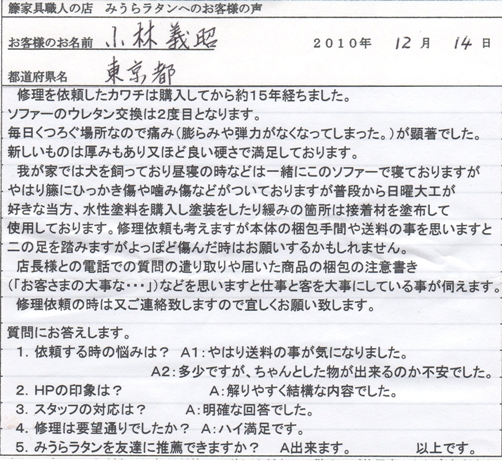 籐家具職人の店　みうらラタンへのお客様の声
お客様のお名前　小林義昭　2010年　12月　14日
都道府県名　東京都
修理を依頼したカワチは購入してから約15年経ちました。
ソファーのウレタン交換は2度目となります。
毎日くつろぐ場所なので痛み(膨らみや弾力がなくなってしまった。)が顕著でした。
新しいものは厚みもあり又ほど良い硬さで満足しております。
我が家では犬を飼っており昼寝の時などは一緒にこのソファーで寝ておりますが
やはり籐にひっかき傷や噛み傷などがついておりますが普段から日曜大工が
好きな当方、水性塗料を購入し塗装をしたり緩みの箇所は接着材を塗布して
使用しております。修理依頼も考えますが本体の梱包手間や送料の事を思いますと
二の足を踏みますがよっぽど傷んだ時はお願いするかもしれません。
店長様との電話での質問の遣り取りや届いた商品の梱包の注意書き
(「お客さまの大事な・・・」)などを思いますと仕事と客を大事にしている事が伺えます。
修理依頼の時は又ご連絡致しますので宜しくお願い致します。
質問にお答えします。
1. 依頼する時の悩みは？　A1:やはり送料の事が気になりました。
A2:多少ですが、ちゃんとした物が出来るのか不安でした。
2. HPの印象は？　A:解りやすく結構な内容でした。
3. スタッフの対応は？　A:明確な回答でした。
4. 修理は要望通りでしたか？　A:ハイ満足です。
5. みうらラタンを友達に推薦できますか？　A出来ます。　以上です。